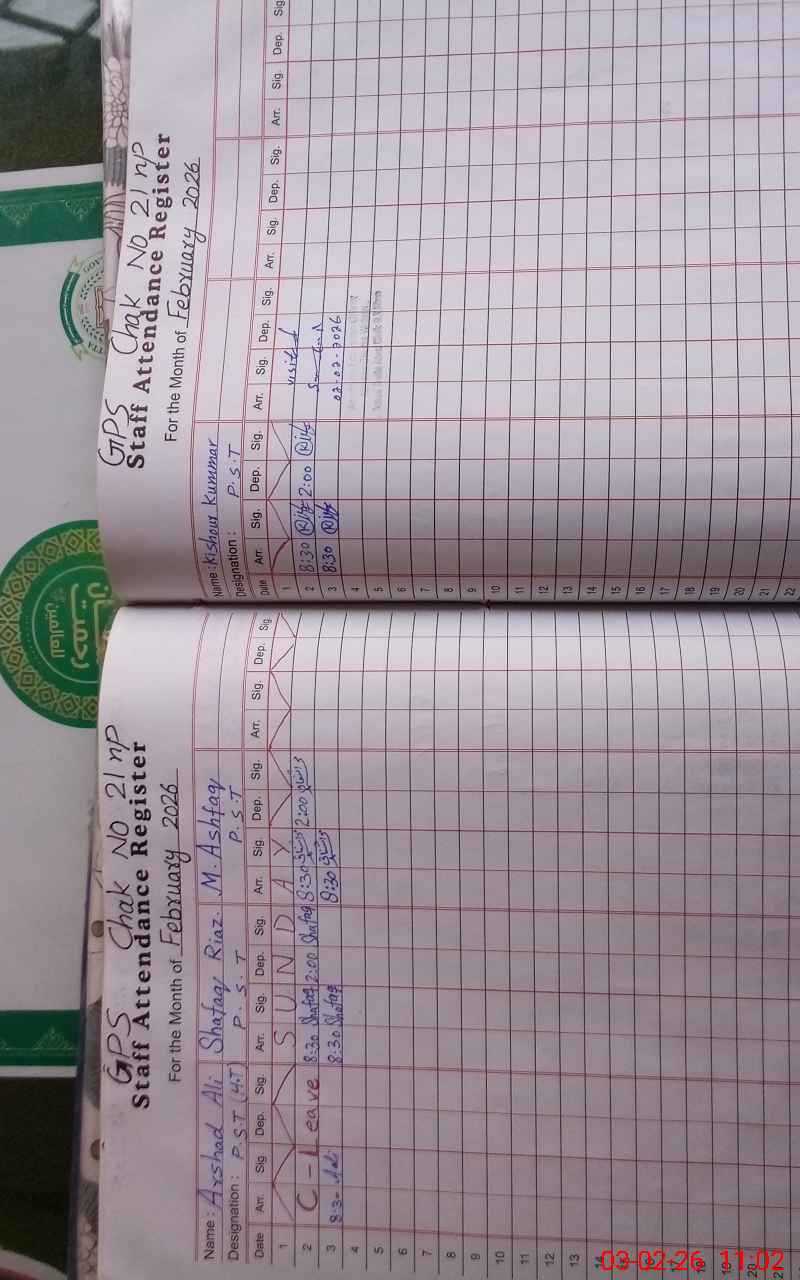 GPS Chak No 21 np
Staff Attendance Register
For the Month of February 2026
Name : Arshad Ali Shafaq Riaz. M. Ashfaq
Designation : P.S.T (H.T) P. S. T P. S. T
Date Arr. Sig. Dep. Sig. Arr. Sig. Dep. Sig. Arr. Sig. Dep. Sig. Arr. Sig. Dep. Sig.
1 S U N D A Y
2 C - Leave 8:30 Shafaq 2:00 Shafaq 8:30 2:00
3 8:30 Ali 8:30 Shafaq 8:30
4
5
6
7
8
9
10
11
12
13
14
15
16
17
18
19
20
21
GPS Chak No 21 np
Staff Attendance Register
For the Month of February 2026
Name : Kishour Kummar
Designation : P. S. T
Date Arr. Sig. Dep. Sig. Arr. Sig. Dep. Sig. Arr. Sig. Dep. Sig. Arr. Sig. Dep. Sig.
1 visited
2 8:30 2:00
3 8:30 02-02-2026
4
5
6
7
8
9
10
11
12
13
14
15
16
17
18
19
20
21
22
03-02-26 11:02